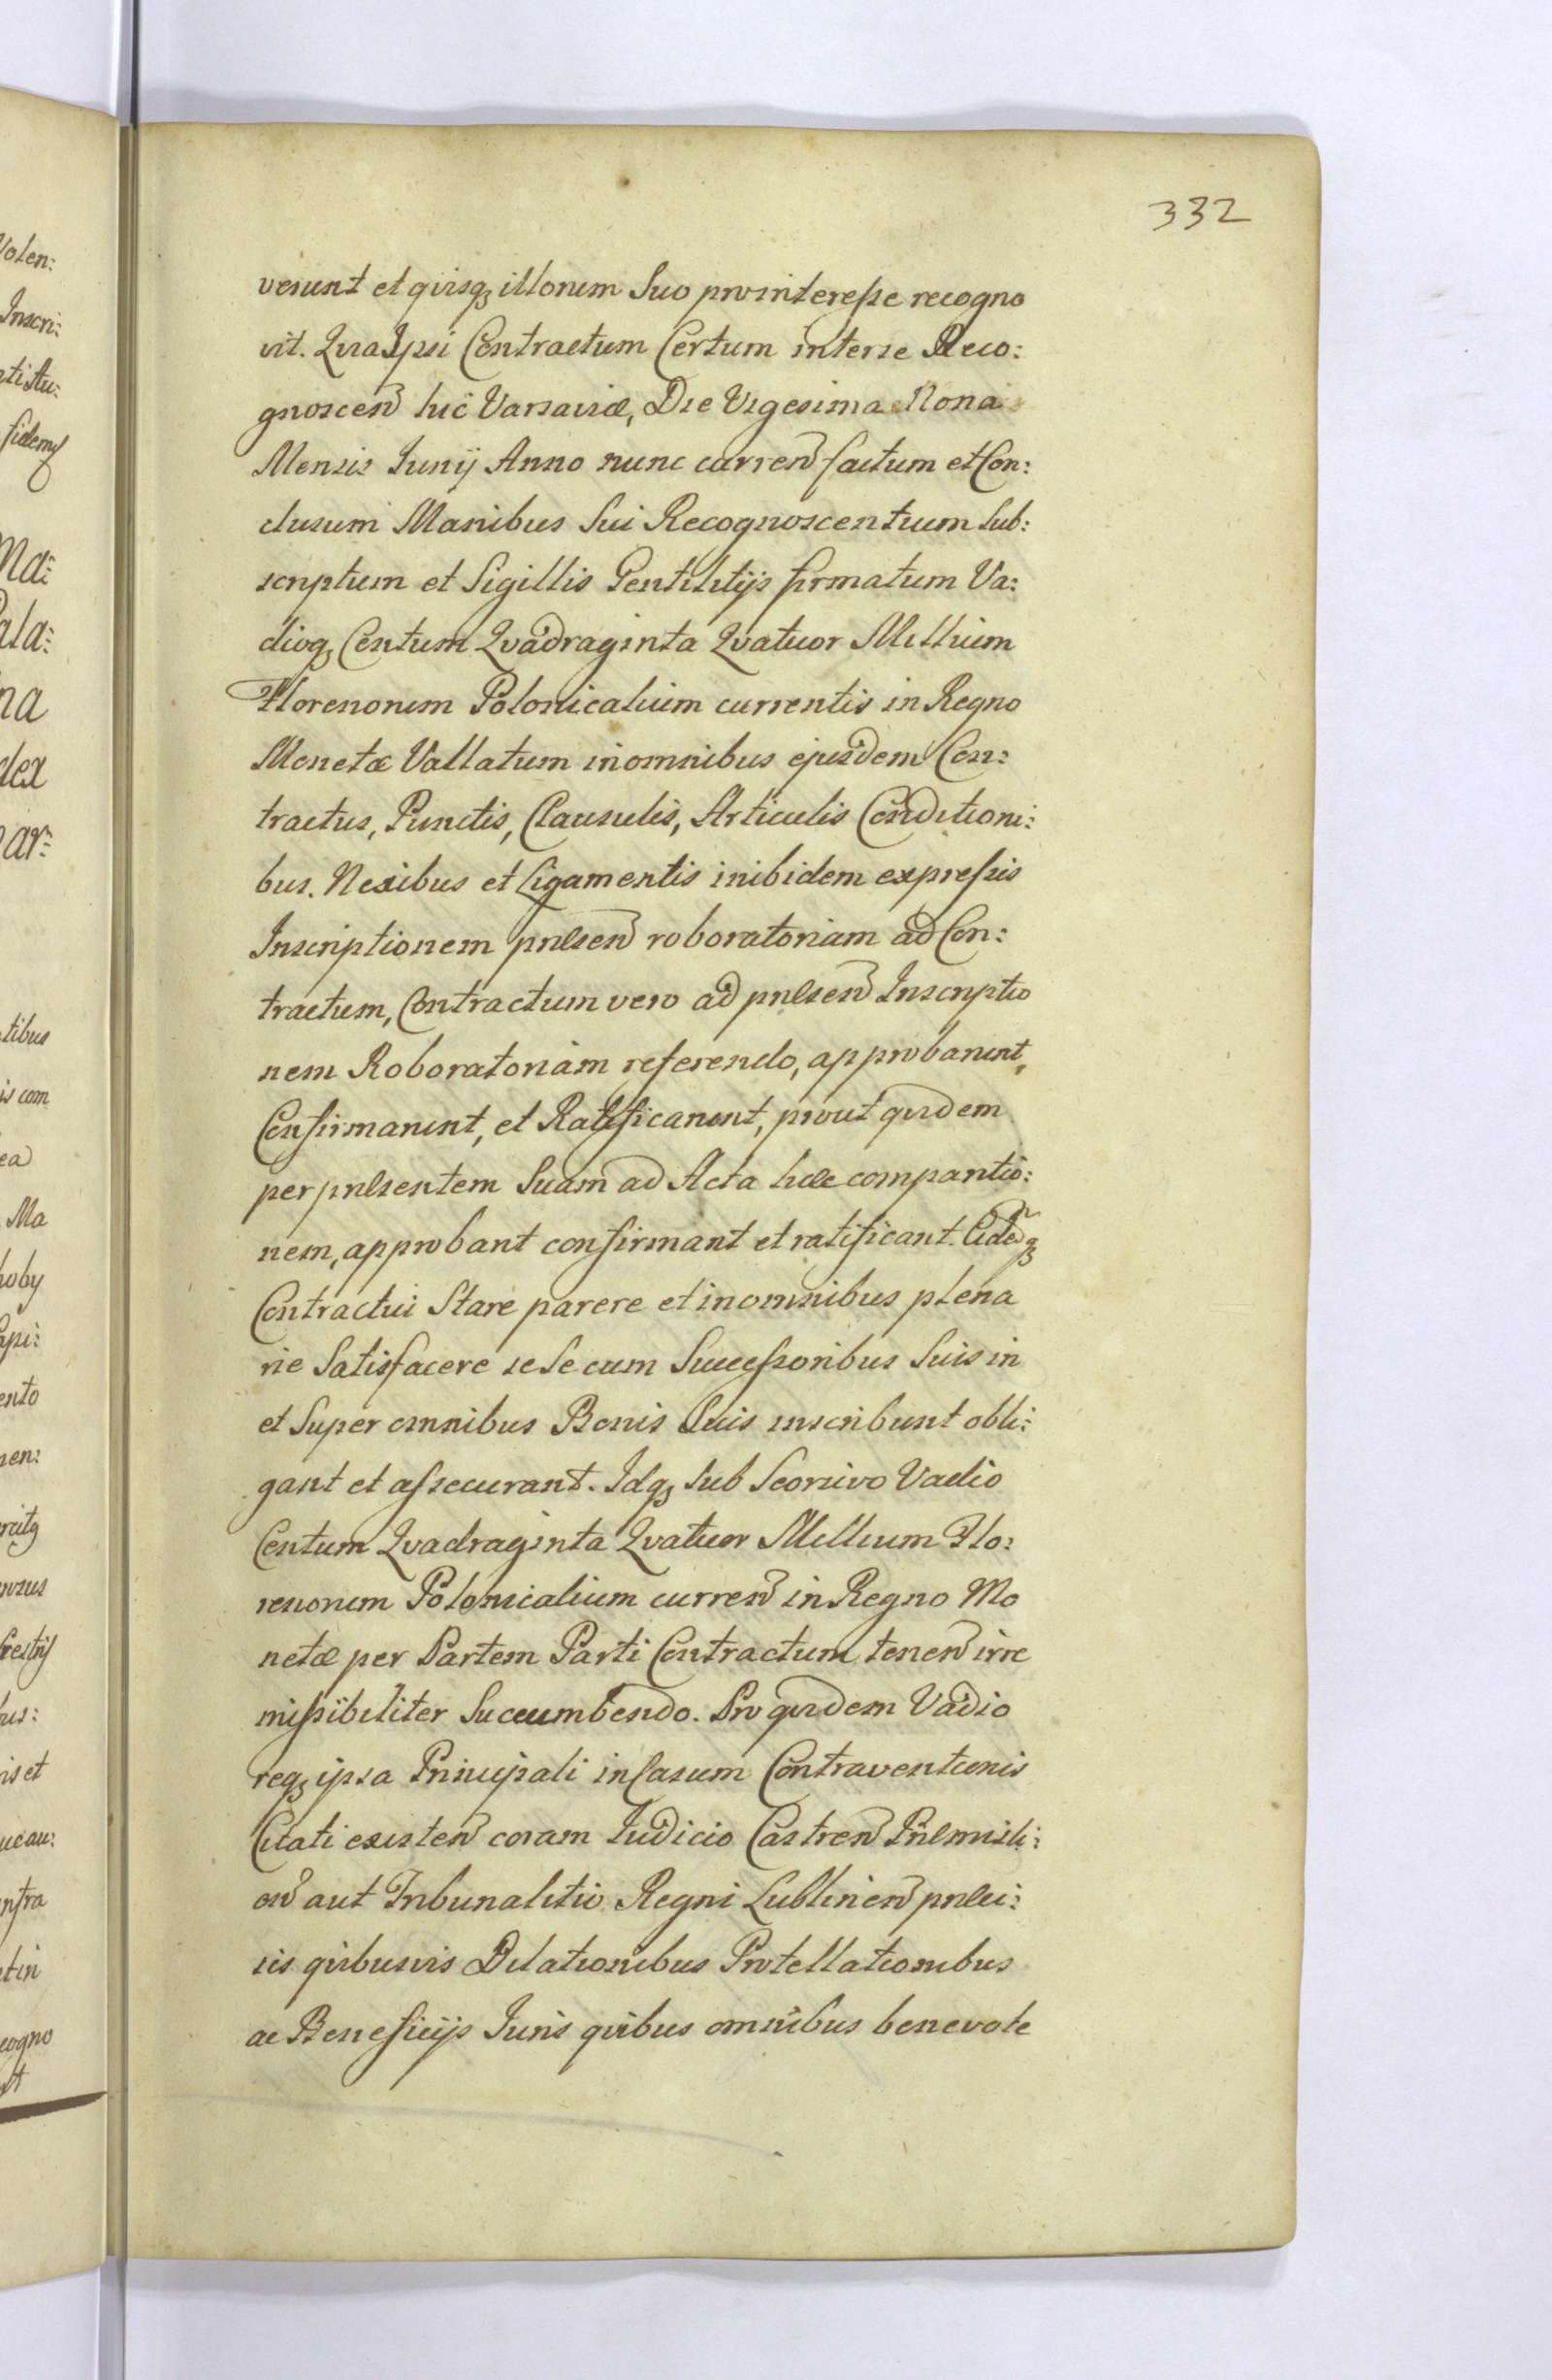 332
verunt et quisq₃ illorum Suo prointeresse recogno
vit. Quia Ipsi Contractum Certum interse Reco:
gnoscen̄ hic Varsaviæ, Die Vigesima Nona
Mensis Junij Anno nunc curren̄ factum et Con:
clusum Manibus Sui Recognoscentium Sub:
scriptum et Sigillis Gentilitijs firmatum Va:
dioq₃ Centum Qvadraginta Qvatuor Millium
Florenorum Polonicalium currentis in Regno
Monetæ Vallatum in omnibus ejusdem Con:
tractus, Punctis, Clausulis, Articulis Conditioni:
bus. Nexibus et Ligamentis inibidem expressis
Inscriptionem pnlsen̄ roboratoriam ad Con:
tractum, Contractum vero ad pnlsen̄ Inscriptio
nem Roboratoriam referendo, approbarunt,
Confirmarunt, et Ratificarunt, prout quidem
per pnlsentem Suam ad Acta hæc comparitio:
nem, approbant confirmant et ratificant. Eidēq₃
Contractui Stare parere et in omnibus plena
rie Satisfacere sese cum Successoribus Suis in
et Super omnibus Bonis Suis inscribunt obli:
gant et assecurant. Idq₃ Sub Seorsivo Vadio
Centum Qvadraginta Qvatuor Millium Flo:
renorum Polonicalium curren̄ in Regno Mo
netæ per Partem Parti Contractum tenen̄ irre
missibiliter Succumbendo. Pro quidem Vadio
req₃ ipsa Principali in Casum Contraventionis
Citati existen̄ coram Judicio Castren̄ Pñlmisli:
en̄ aut Tribunalitio Regni Lublinen̄ pnlci:
sis quibusvis Dilationibus Protellationibus
ac Beneficijs Juris quibus omnibus benevole